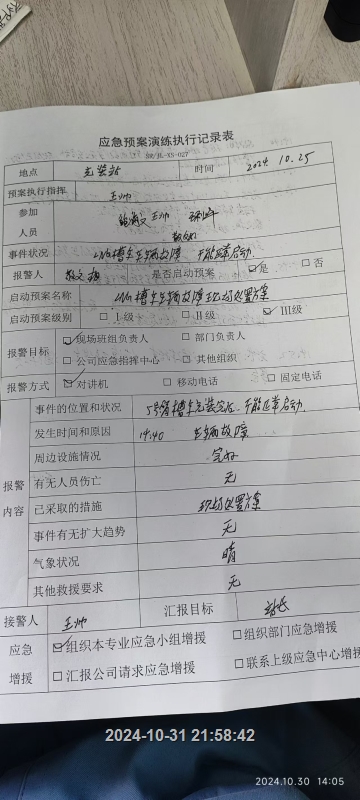 应急预案演练执行记录表
地点 充装站 时间 2024 10.25
预案执行指挥 王帅
参加
人员 王帅
事件状况 LNG槽车车辆故障 不能正常启动.
报警人 是否启动预案 ☑是 □否
启动预案名称 LNG槽车车辆故障现场处置方案
启动预案级别 □I级 □II级 ☑III级
报警目标 ☑现场班组负责人 □部门负责人
□公司应急指挥中心 □其他组织
报警方式 ☑对讲机 □移动电话 □固定电话
报警
内容
事件的位置和状况 槽车充装完后.不能正常启动.
发生时间和原因 14:40 车辆故障
周边设施情况 完好
有无人员伤亡 无
已采取的措施 现场处置方案
事件有无扩大趋势 无
气象状况 晴
其他救援要求 无
接警人 王帅 汇报目标 站长
应急
增援
☑组织本专业应急小组增援 □组织部门应急增援
□汇报公司请求应急增援 □联系上级应急中心增援
2024-10-31 21:58:42
2024.10.30 14:05